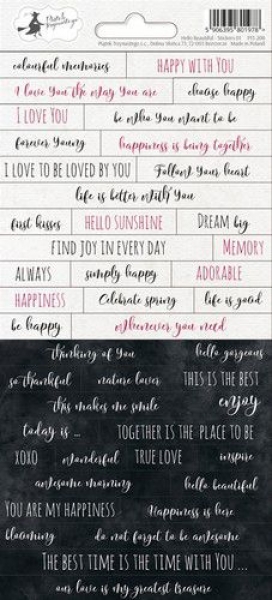 Piątek Trzynastego
Hello Beautiful - Stickers 01
Made in Poland
5 906395 801978 >
colourful memories HAPPY WITH YOU
I love you the way you are choose happy
I LOVE YOU be who you want to be
forever young happiness is being together
I LOVE TO BE LOVED BY YOU Follow your heart
life is better with you
first kisses HELLO SUNSHINE DREAM big
FIND JOY IN EVERY DAY MEMORY
ALWAYS simply happy ADORABLE
HAPPINESS Celebrate spring life is good
be happy whenever you need
thinking of you hello gorgeous
so thankful nature lover THIS IS THE BEST
this makes me smile enjoy
today is ... TOGETHER IS THE PLACE TO BE
XOXO wonderful TRUE LOVE inspire
awesome morning hello beautiful
YOU ARE MY HAPPINESS Happiness is here
blooming do not forget to be awesome
THE BEST TIME IS THE TIME WITH YOU ...
our love is my greatest treasure